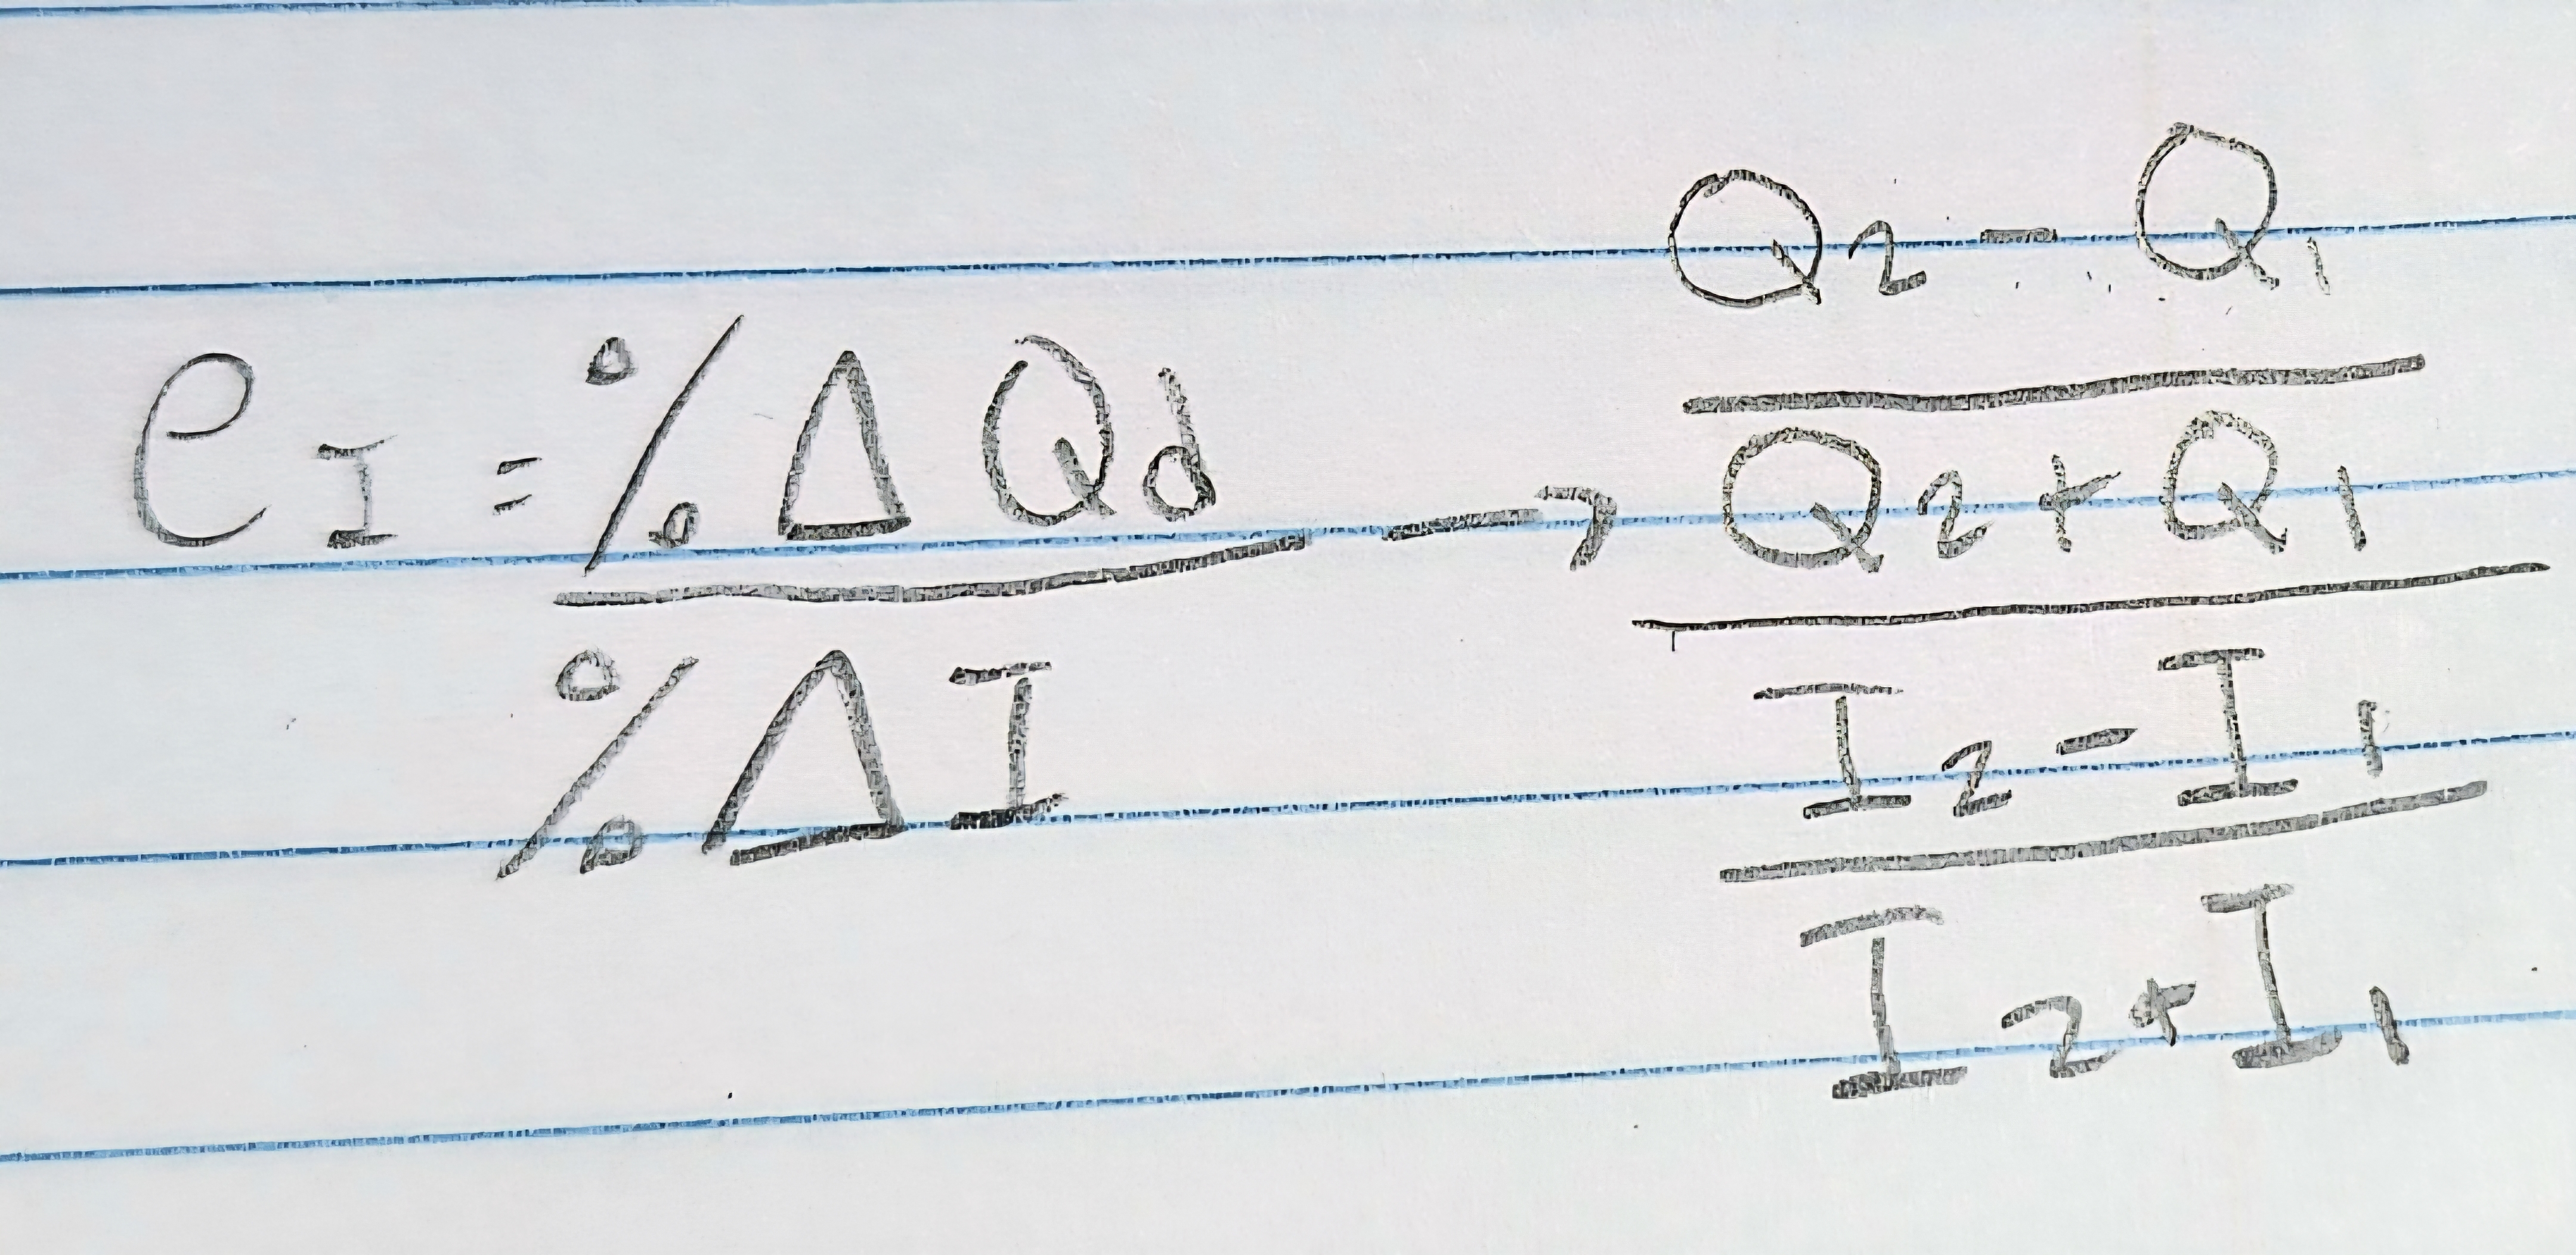 e I = % Δ Qd → Q2 - Q1
Q2 + Q1
% Δ I
I2 - I1
I2 + I1